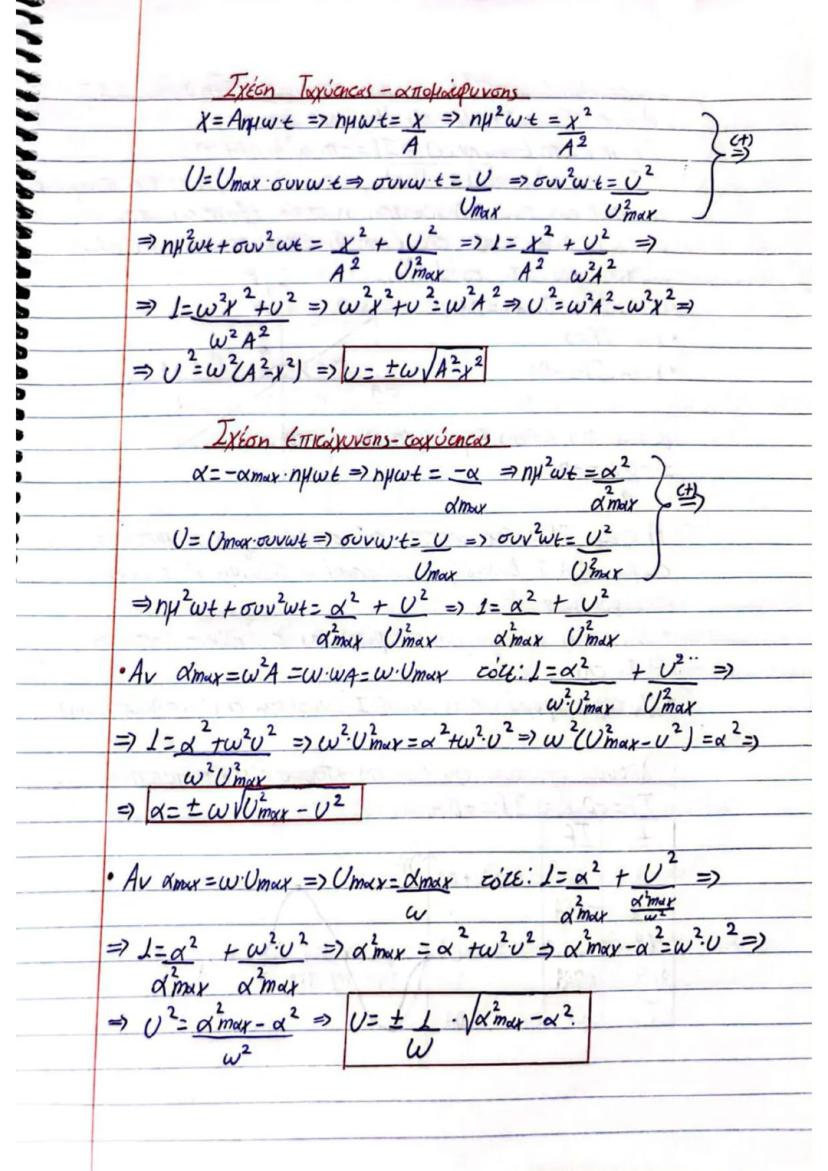 Σχέση Ταχύτητας - απομάκρυνσης
x = Aημωt ⇒ ημωt = x/A ⇒ ημ²ω·t = x²/A²
υ = υmax·συνωt ⇒ συνω·t = υ/υmax ⇒ συν²ω·t = υ²/υ²max } (+)⇒
⇒ ημ²ωt + συν²ωt = x²/A² + υ²/υ²max ⇒ 1 = x²/A² + υ²/ω²A² ⇒
⇒ 1 = ω²x² + υ²/ω²A² ⇒ ω²x² + υ² = ω²A² ⇒ υ² = ω²A² - ω²x² ⇒
⇒ υ² = ω²(A² - x²) ⇒ υ = ±ω√A² - x²
Σχέση επιτάχυνσης - ταχύτητας
α = -αmax·ημωt ⇒ ημωt = -α/αmax ⇒ ημ²ωt = α²/α²max
υ = υmax·συνωt ⇒ συνω·t = υ/υmax ⇒ συν²ωt = υ²/υ²max } (+)⇒
⇒ ημ²ωt + συν²ωt = α²/α²max + υ²/υ²max ⇒ 1 = α²/α²max + υ²/υ²max
• Αν αmax = ω²A = ω·ωA = ω·υmax τότε: 1 = α²/ω²·υ²max + υ²/υ²max ⇒
⇒ 1 = α² + ω²υ²/ω²υ²max ⇒ ω²·υ²max = α² + ω²·υ² ⇒ ω²(υ²max - υ²) = α² ⇒
⇒ α = ±ω√υ²max - υ²
• Αν αmax = ω·υmax ⇒ υmax = αmax/ω τότε: 1 = α²/α²max + υ²/α²max/ω² ⇒
⇒ 1 = α²/α²max + ω²·υ²/α²max ⇒ α²max = α² + ω²·υ² ⇒ α²max - α² = ω²·υ² ⇒
⇒ υ² = α²max - α²/ω² ⇒ υ = ± 1/ω · √α²max - α²